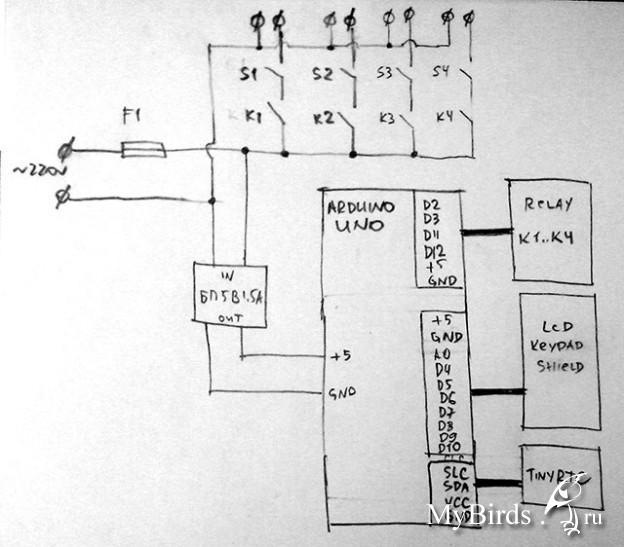 S1 S2 S3 S4
K1 K2 K3 K4
F1
~220V
ARDUINO
UNO
D2
D3
D11
D12
+5
GND
RELAY
K1..K4
IN
БП 5В 1.5А
OUT
+5
GND
+5
GND
A0
D4
D5
D6
D7
D8
D9
D10
LCD
KEYPAD
SHIELD
SLC
SDA
VCC
TINYRTC
MyBirds.ru